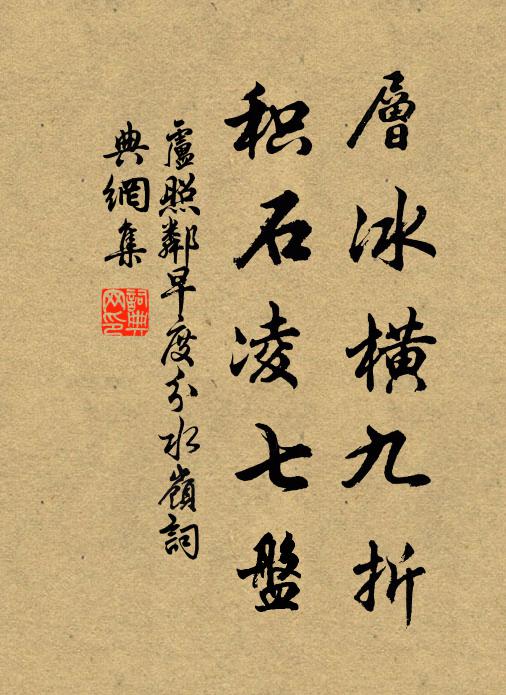 層冰橫九折
积石凌七盤
盧照鄰早度分水嶺詞
典網集
詞典网印